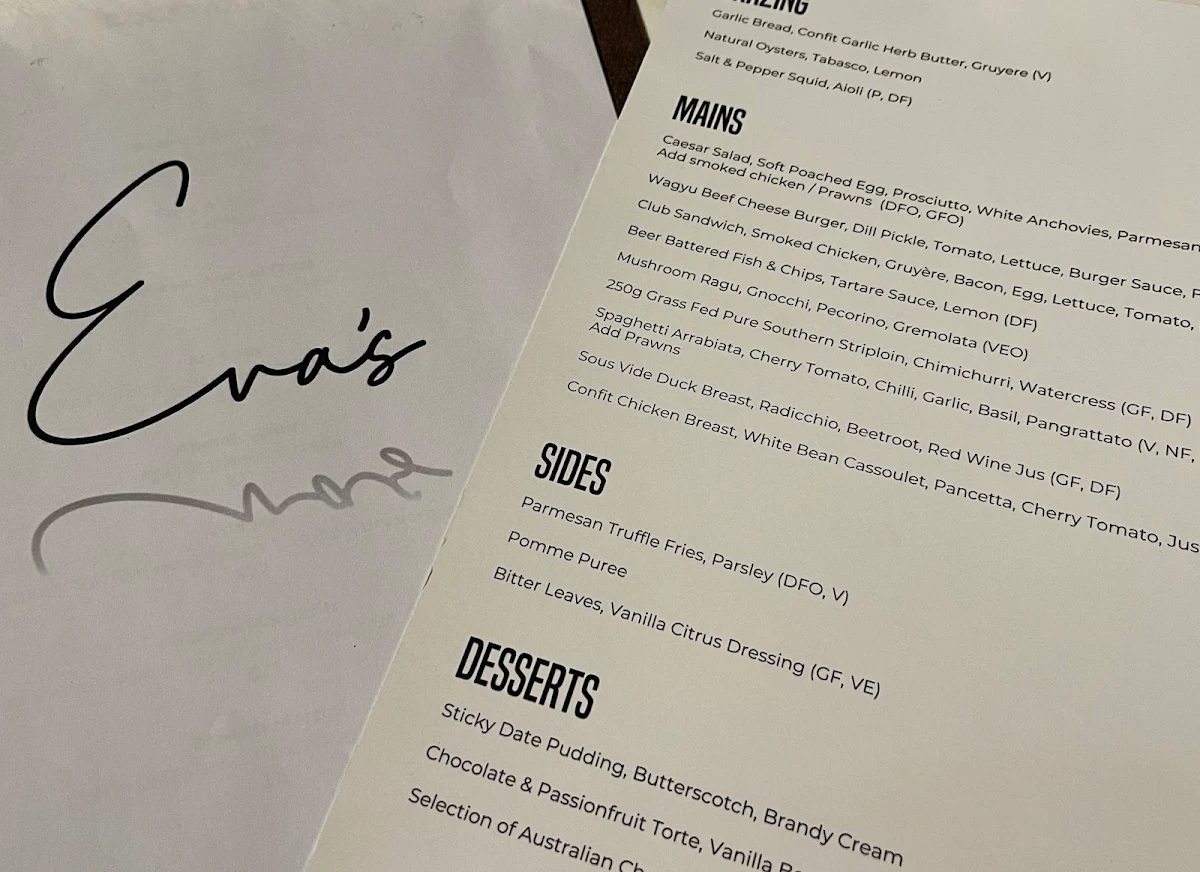 Eva's
Garlic Bread, Confit Garlic Herb Butter, Gruyere (V)
Natural Oysters, Tabasco, Lemon
Salt & Pepper Squid, Aioli (P, DF)
MAINS
Caesar Salad, Soft Poached Egg, Prosciutto, White Anchovies, Parmesan
Add smoked chicken / Prawns (DFO, GFO)
Wagyu Beef Cheese Burger, Dill Pickle, Tomato, Lettuce, Burger Sauce,
Club Sandwich, Smoked Chicken, Gruyère, Bacon, Egg, Lettuce, Tomato,
Beer Battered Fish & Chips, Tartare Sauce, Lemon (DF)
Mushroom Ragu, Gnocchi, Pecorino, Gremolata (VEO)
250g Grass Fed Pure Southern Striploin, Chimichurri, Watercress (GF, DF)
Spaghetti Arrabiata, Cherry Tomato, Chilli, Garlic, Basil, Pangrattato (V, NF,
Add Prawns
Sous Vide Duck Breast, Radicchio, Beetroot, Red Wine Jus (GF, DF)
Confit Chicken Breast, White Bean Cassoulet, Pancetta, Cherry Tomato, Jus
SIDES
Parmesan Truffle Fries, Parsley (DFO, V)
Pomme Puree
Bitter Leaves, Vanilla Citrus Dressing (GF, VE)
DESSERTS
Sticky Date Pudding, Butterscotch, Brandy Cream
Chocolate & Passionfruit Torte, Vanilla
Selection of Australian